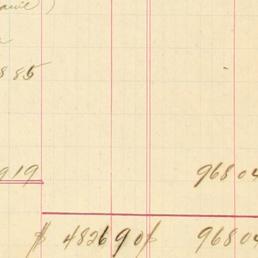 885
919 96804
$ 482690 $ 96804